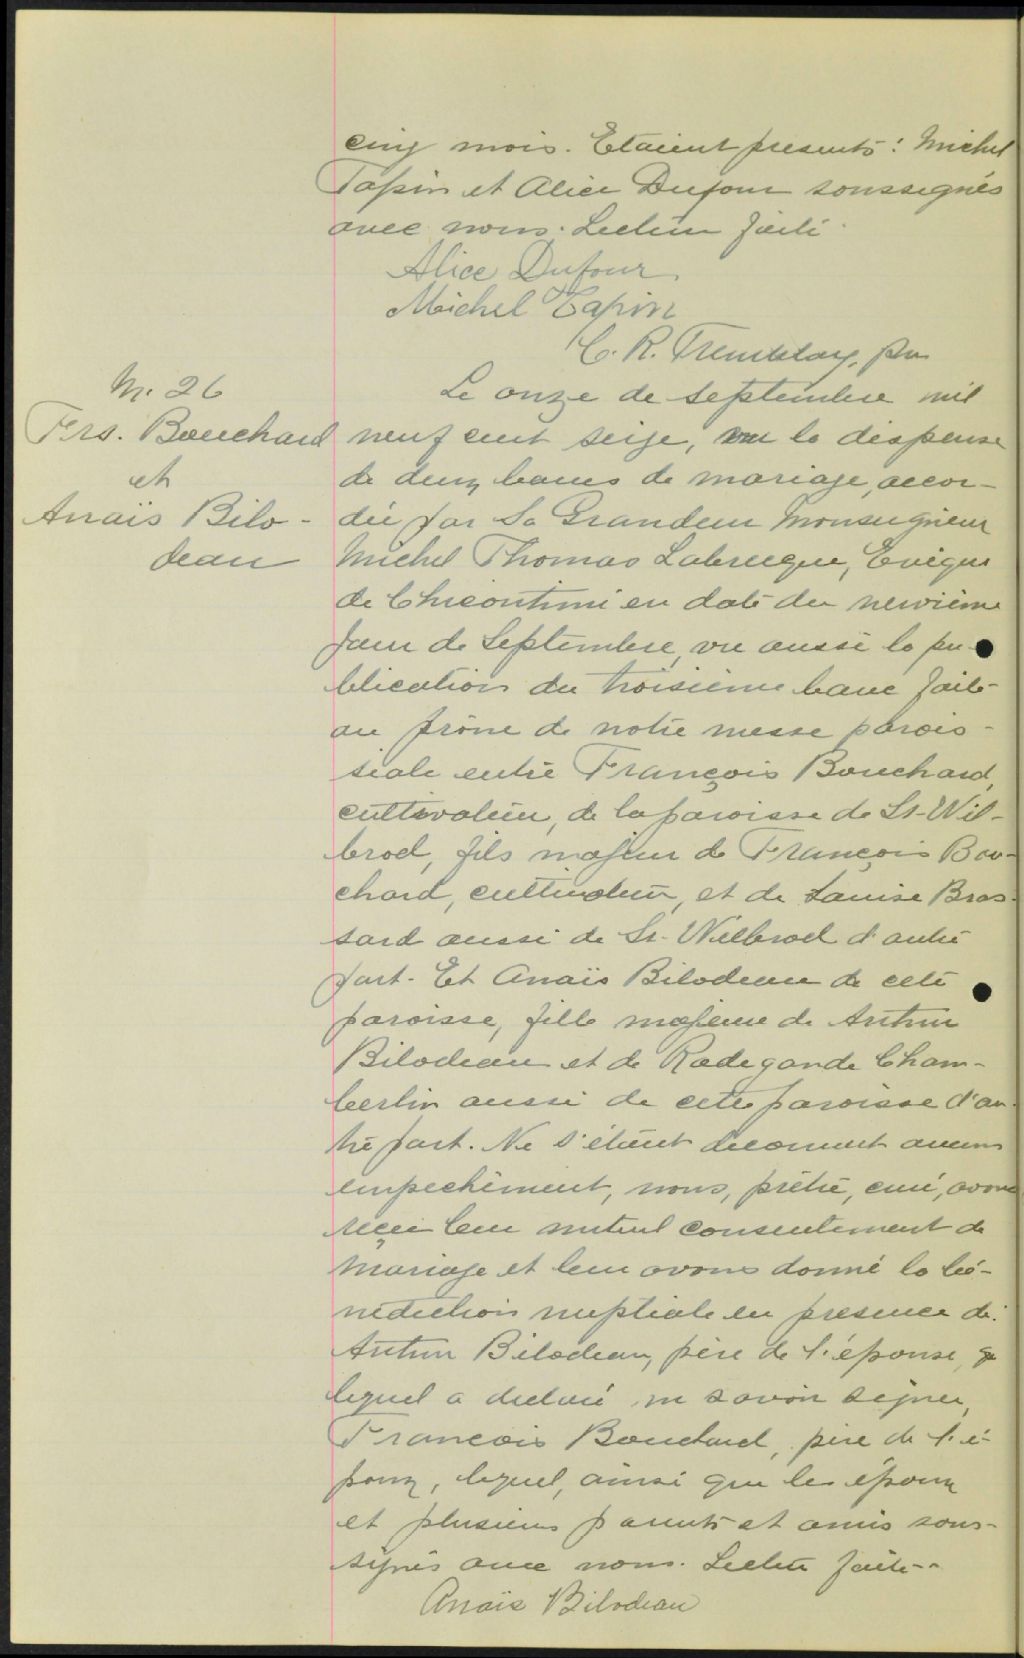 cinq mois. Etaient présents: Michel
Tapin et Alice Dufour soussignés
avec nous. Lecture faite.
Alice Dufour
Michel Tapin
C. R. Tremblay, ptre
M. 26
Frs. Bouchard
et
Anaïs Bilo-
deau
Le onze de septembre mil
neuf cent seize, vu la dispense
de deux bancs de mariage, accor-
dée par Sa Grandeur Monseigneur
Michel Thomas Labrecque, Evêque
de Chicoutimi en date du neuvième
jour de Septembre, vu aussi la pu-
blication du troisième banc faite
au prône de notre messe parois-
siale entre François Bouchard,
cultivateur, de la paroisse de St-Wil-
brod, fils majeur de François Bou-
chard, cultivateur, et de Louise Bras-
sard aussi de St-Wilbrod d'autre
part. Et Anaïs Bilodeau de cette
paroisse, fille majeure de Arthur
Bilodeau et de Radegonde Cham-
berlin aussi de cette paroisse d'au-
tre part. Ne s'étant découvert aucun
empechêment, nous, prêtre, curé, avons
reçu leur mutuel consentement de
mariage et leur avons donné la bé-
nédiction nuptiale en presence de:
Arthur Bilodeau, père de l'épouse,
lequel a declaré ne savoir signer,
François Bouchard, père de l'é-
poux, lequel, ainsi que les époux
et plusieurs parents et amis sous-
signés avec nous. Lecture faite--
Anaïs Bilodeau